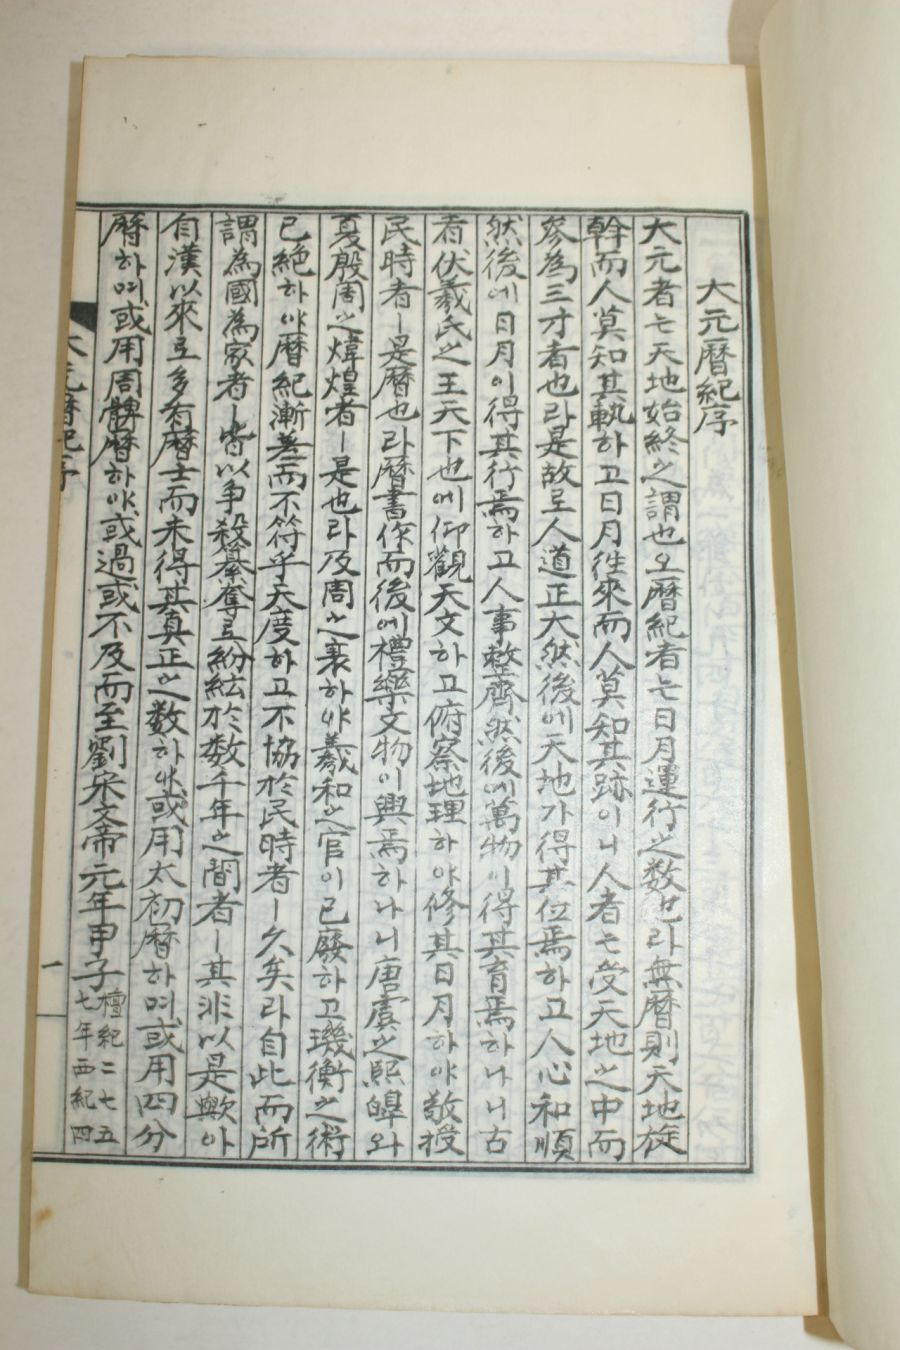 大元曆紀序
大元者는天地始終之謂也오曆紀者는日月運行之数也라無曆則天地旋
斡而人莫知其軌하고日月往來而人莫知其跡이니人者는受天地之中而
參為三才者也라是故로人道正大然後에天地가得其位焉하고人心和順
然後에日月이得其行焉하고人事整齊然後에萬物이得其育焉하나니古
者伏羲氏之王天下也에仰觀天文하고俯察地理하야修其日月하야敬授
民時者ㅣ是曆也라曆書作而後에禮樂文物이興焉하나니唐虞之熙皡와
夏殷周之煒煌者ㅣ是也라及周之衰하야羲和之官이已廢하고璣衡之術
已絶하야曆紀漸差而不符乎天度하고不協於民時者ㅣ久矣라自此而所
謂為國為家者ㅣ皆以爭殺簒奪로紛紜於数千年之間者ㅣ其非以是歟아
自漢以來로多有曆士而未得其真正之数하야或用太初曆하며或用四分
曆하며或用周髀曆하야或過或不及而至劉宋文帝元年甲子檀紀二七五
七年西紀四
大元曆紀序
一